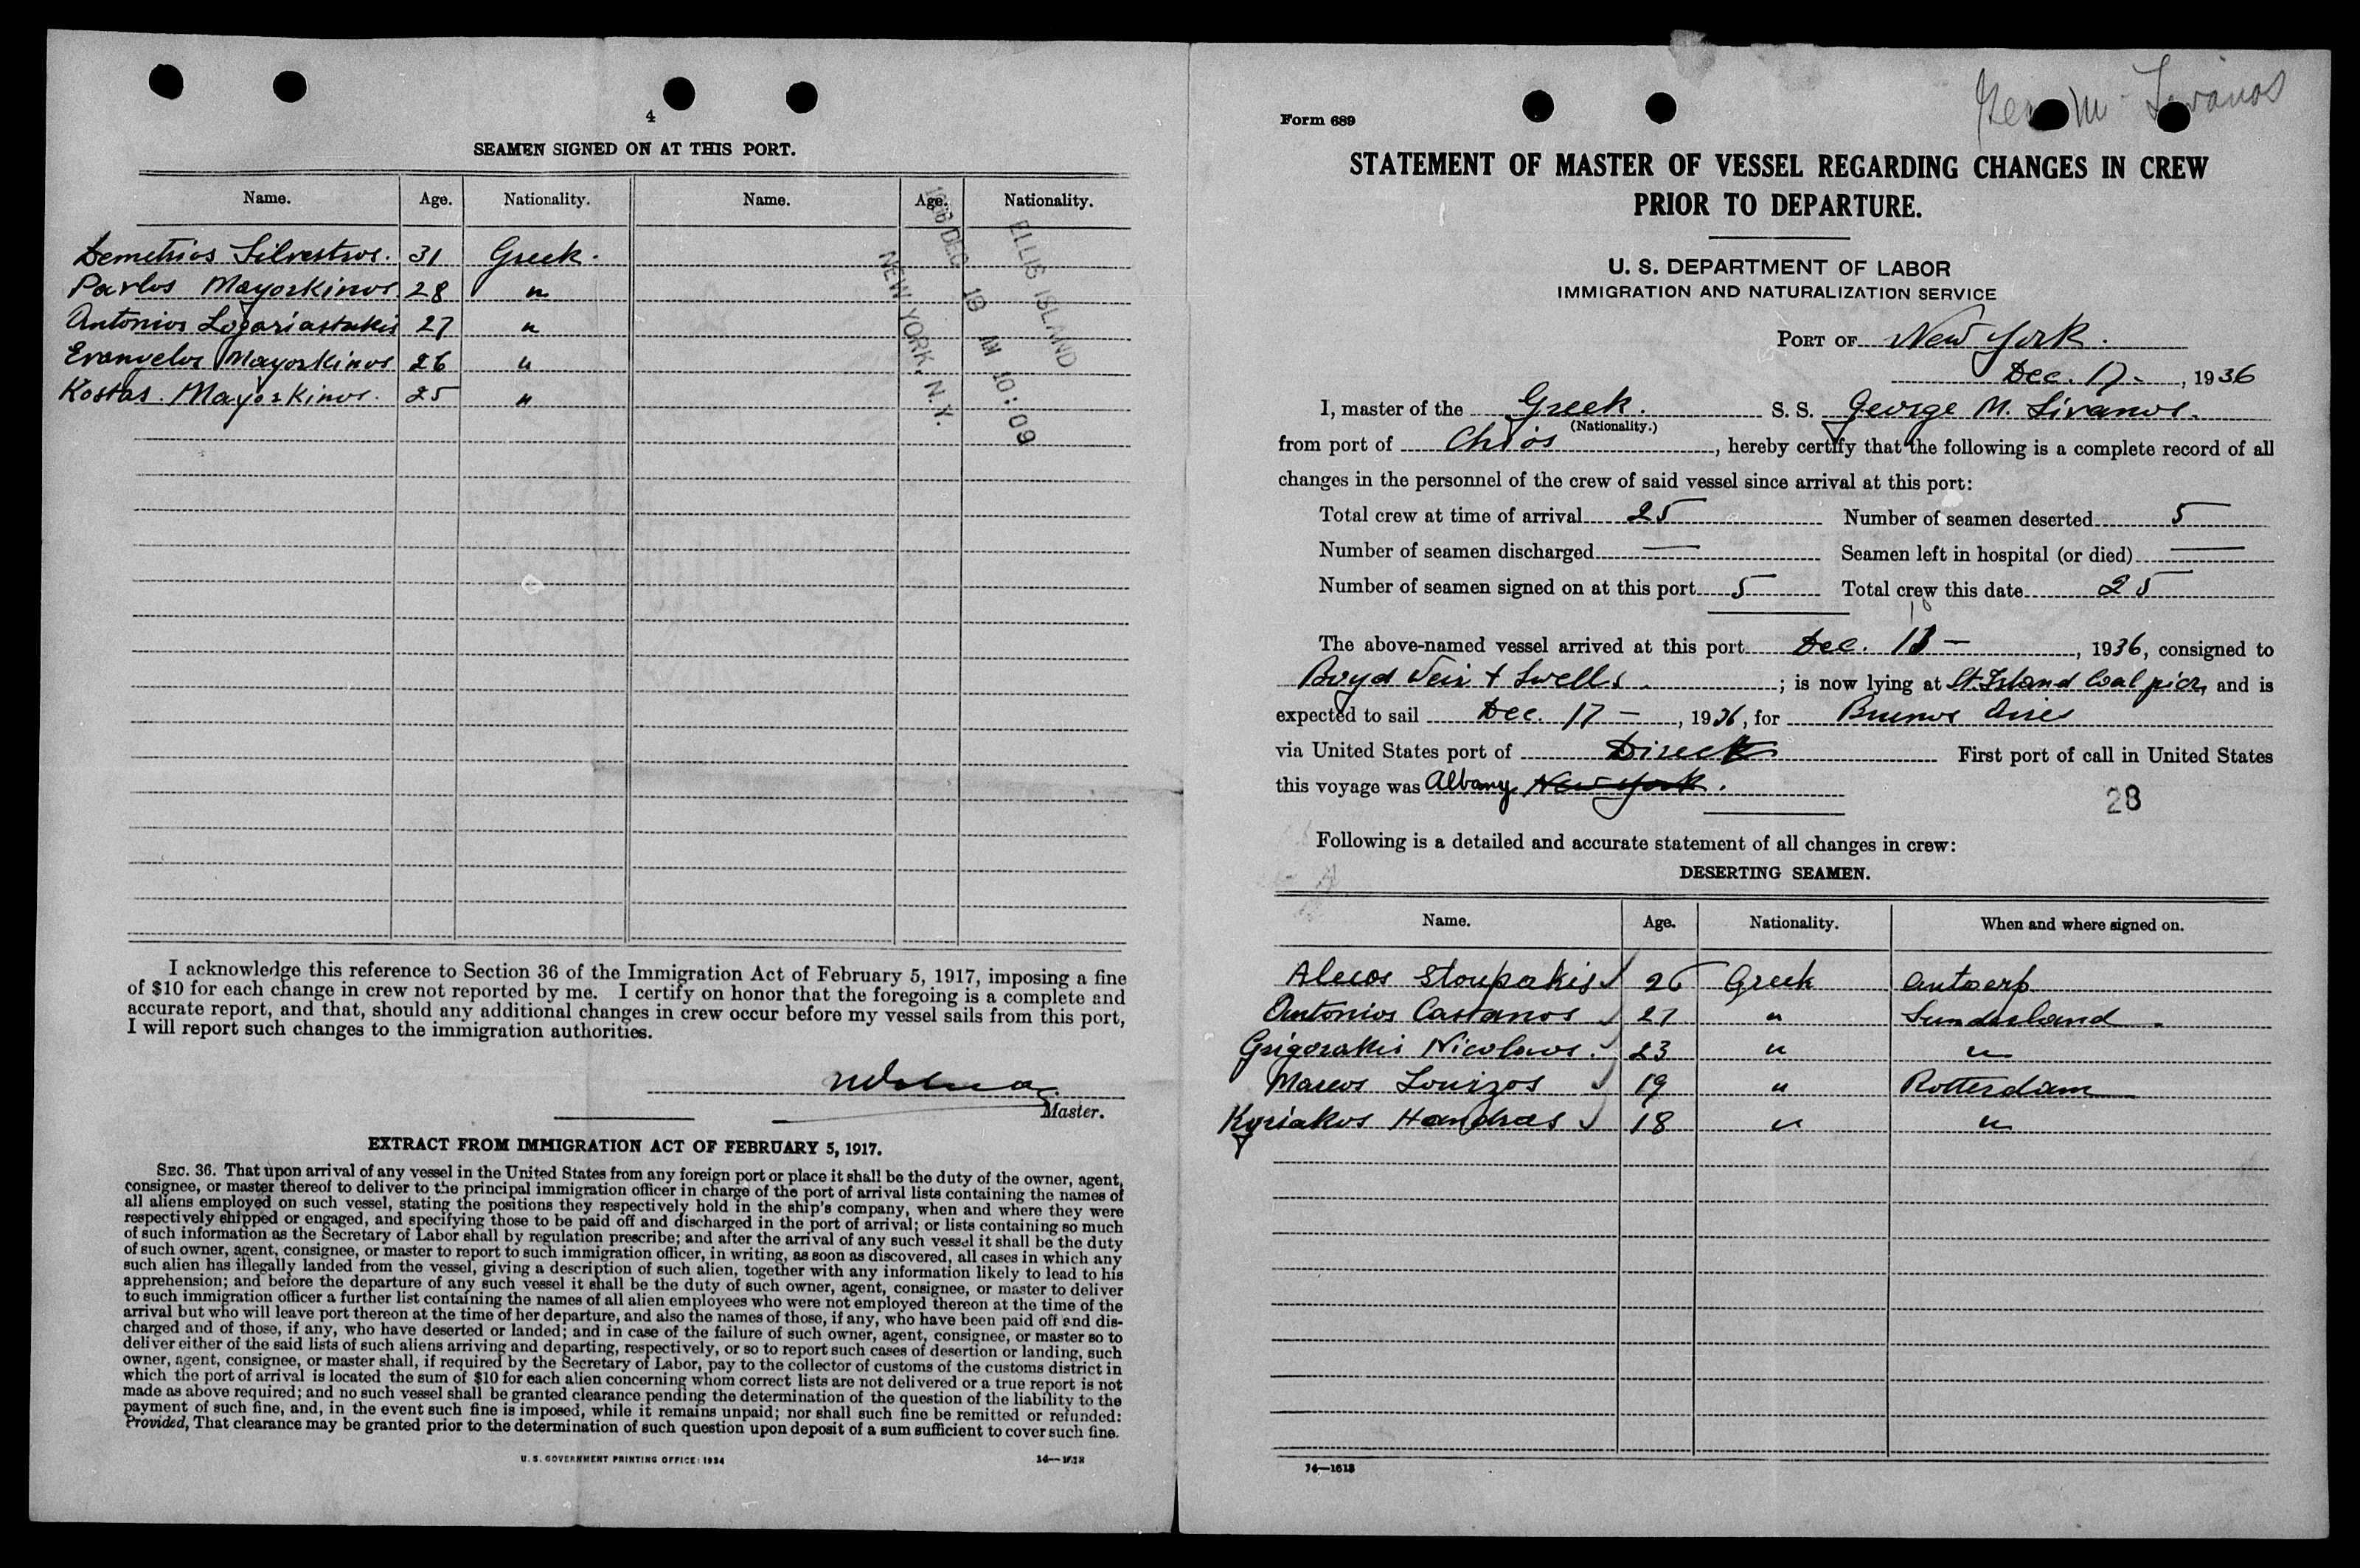 4
SEAMEN SIGNED ON AT THIS PORT.
Name. Age. Nationality. Name. Age. Nationality.
Demetrios Silvestros. 31 Greek.
Pavlos Mayorkinos 28 "
Antonios Logariastakis 27 "
Evanyelos Mayorkinos 26 "
Kostas. Mayorkinos. 25 "
ELLIS ISLAND
1936 DEC 19 AM 10:09
NEW YORK, N.Y.
I acknowledge this reference to Section 36 of the Immigration Act of February 5, 1917, imposing a fine
of $10 for each change in crew not reported by me. I certify on honor that the foregoing is a complete and
accurate report, and that, should any additional changes in crew occur before my vessel sails from this port,
I will report such changes to the immigration authorities.
Master.
EXTRACT FROM IMMIGRATION ACT OF FEBRUARY 5, 1917.
SEC. 36. That upon arrival of any vessel in the United States from any foreign port or place it shall be the duty of the owner, agent,
consignee, or master thereof to deliver to the principal immigration officer in charge of the port of arrival lists containing the names of
all aliens employed on such vessel, stating the positions they respectively hold in the ship's company, when and where they were
respectively shipped or engaged, and specifying those to be paid off and discharged in the port of arrival; or lists containing so much
of such information as the Secretary of Labor shall by regulation prescribe; and after the arrival of any such vessel it shall be the duty
of such owner, agent, consignee, or master to report to such immigration officer, in writing, as soon as discovered, all cases in which any
such alien has illegally landed from the vessel, giving a description of such alien, together with any information likely to lead to his
apprehension; and before the departure of any such vessel it shall be the duty of such owner, agent, consignee, or master to deliver
to such immigration officer a further list containing the names of all alien employees who were not employed thereon at the time of the
arrival but who will leave port thereon at the time of her departure, and also the names of those, if any, who have been paid off and dis-
charged and of those, if any, who have deserted or landed; and in case of the failure of such owner, agent, consignee, or master so to
deliver either of the said lists of such aliens arriving and departing, respectively, or so to report such cases of desertion or landing, such
owner, agent, consignee, or master shall, if required by the Secretary of Labor, pay to the collector of customs of the customs district in
which the port of arrival is located the sum of $10 for each alien concerning whom correct lists are not delivered or a true report is not
made as above required; and no such vessel shall be granted clearance pending the determination of the question of the liability to the
payment of such fine, and, in the event such fine is imposed, while it remains unpaid; nor shall such fine be remitted or refunded:
Provided, That clearance may be granted prior to the determination of such question upon deposit of a sum sufficient to cover such fine.
U. S. GOVERNMENT PRINTING OFFICE: 1934 14—1613
M Livanos
Form 689
STATEMENT OF MASTER OF VESSEL REGARDING CHANGES IN CREW
PRIOR TO DEPARTURE.
U. S. DEPARTMENT OF LABOR
IMMIGRATION AND NATURALIZATION SERVICE
PORT OF New York.
Dec. 17-, 1936
I, master of the Greek. S. S. George M. Livanos.
(Nationality.)
from port of Chios, hereby certify that the following is a complete record of all
changes in the personnel of the crew of said vessel since arrival at this port:
Total crew at time of arrival 25 Number of seamen deserted 5
Number of seamen discharged — Seamen left in hospital (or died) —
Number of seamen signed on at this port 5 Total crew this date 25
The above-named vessel arrived at this port Dec. 18 —, 1936, consigned to
Boyd Weir + Sewells.; is now lying at St. Island Coal pier, and is
expected to sail Dec. 17 —, 1936, for Buenos Aires
via United States port of Direct First port of call in United States
this voyage was Albany New York.
28
Following is a detailed and accurate statement of all changes in crew:
DESERTING SEAMEN.
Name. Age. Nationality. When and where signed on.
Alecos Stoupakis 26 Greek Antwerp
Antonios Castanos 27 " Sunderland.
Grigorakis Nicolaos. 23 " "
Marcos Louizos 19 " Rotterdam
Kyriakos Handras 18 " "
14—1613